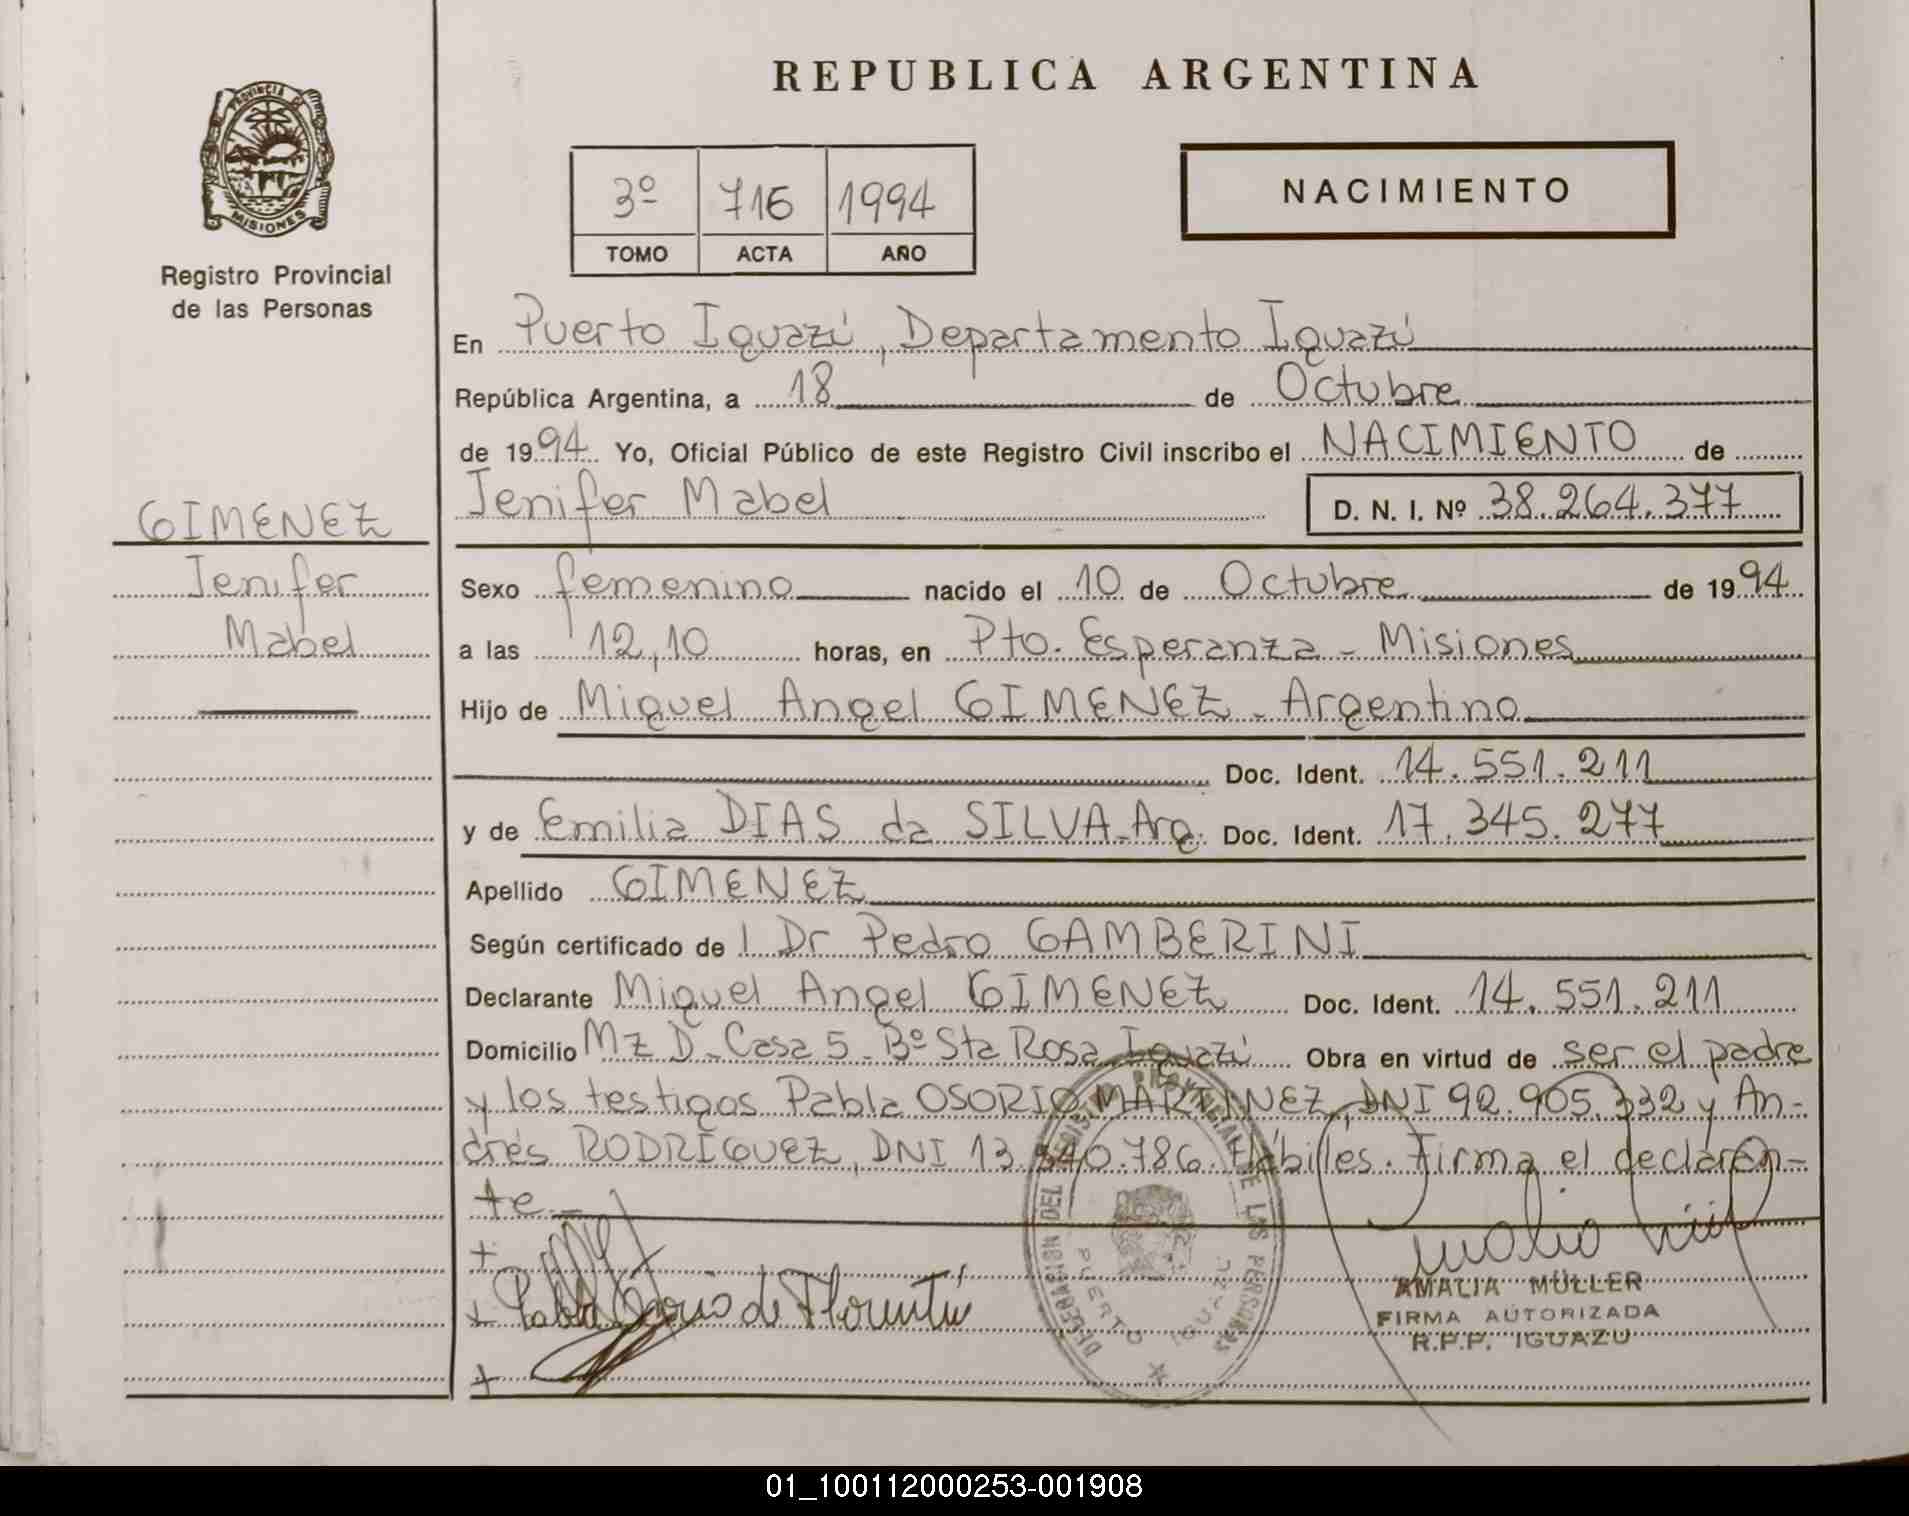 REPUBLICA ARGENTINA
PROVINCIA DE
MISIONES
Registro Provincial
de las Personas
3º 716 1994
TOMO ACTA AÑO
NACIMIENTO
GIMENEZ
Jenifer
Mabel
En Puerto Iguazú, Departamento Iguazú
República Argentina, a 18 de Octubre
de 1994 Yo, Oficial Público de este Registro Civil inscribo el NACIMIENTO de
Jenifer Mabel D. N. I. Nº 38.264.377
Sexo femenino nacido el 10 de Octubre de 1994
a las 12,10 horas, en Pto. Esperanza - Misiones
Hijo de Miguel Angel GIMENEZ - Argentino
Doc. Ident. 14.551.211
y de Emilia DIAS da SILVA-Arg. Doc. Ident. 17.345.277
Apellido GIMENEZ
Según certificado de l Dr Pedro GAMBERINI
Declarante Miguel Angel GIMENEZ Doc. Ident. 14.551.211
Domicilio Mz D - Casa 5 - Bº Sta Rosa Iguazú Obra en virtud de ser el padre
y los testigos Pabla OSORIO MARTINEZ, DNI 92.905.332 y An-
drés RODRÍGUEZ, DNI 13.840.786. Hábiles. Firma el declaran-
te.-
Pabla Osorio de Florentín
DELEGACION DEL REGISTRO PROVINCIAL DE LAS PERSONAS
PUERTO IGUAZU
AMALIA MÜLLER
FIRMA AUTORIZADA
R.P.P. IGUAZU
01_100112000253-001908